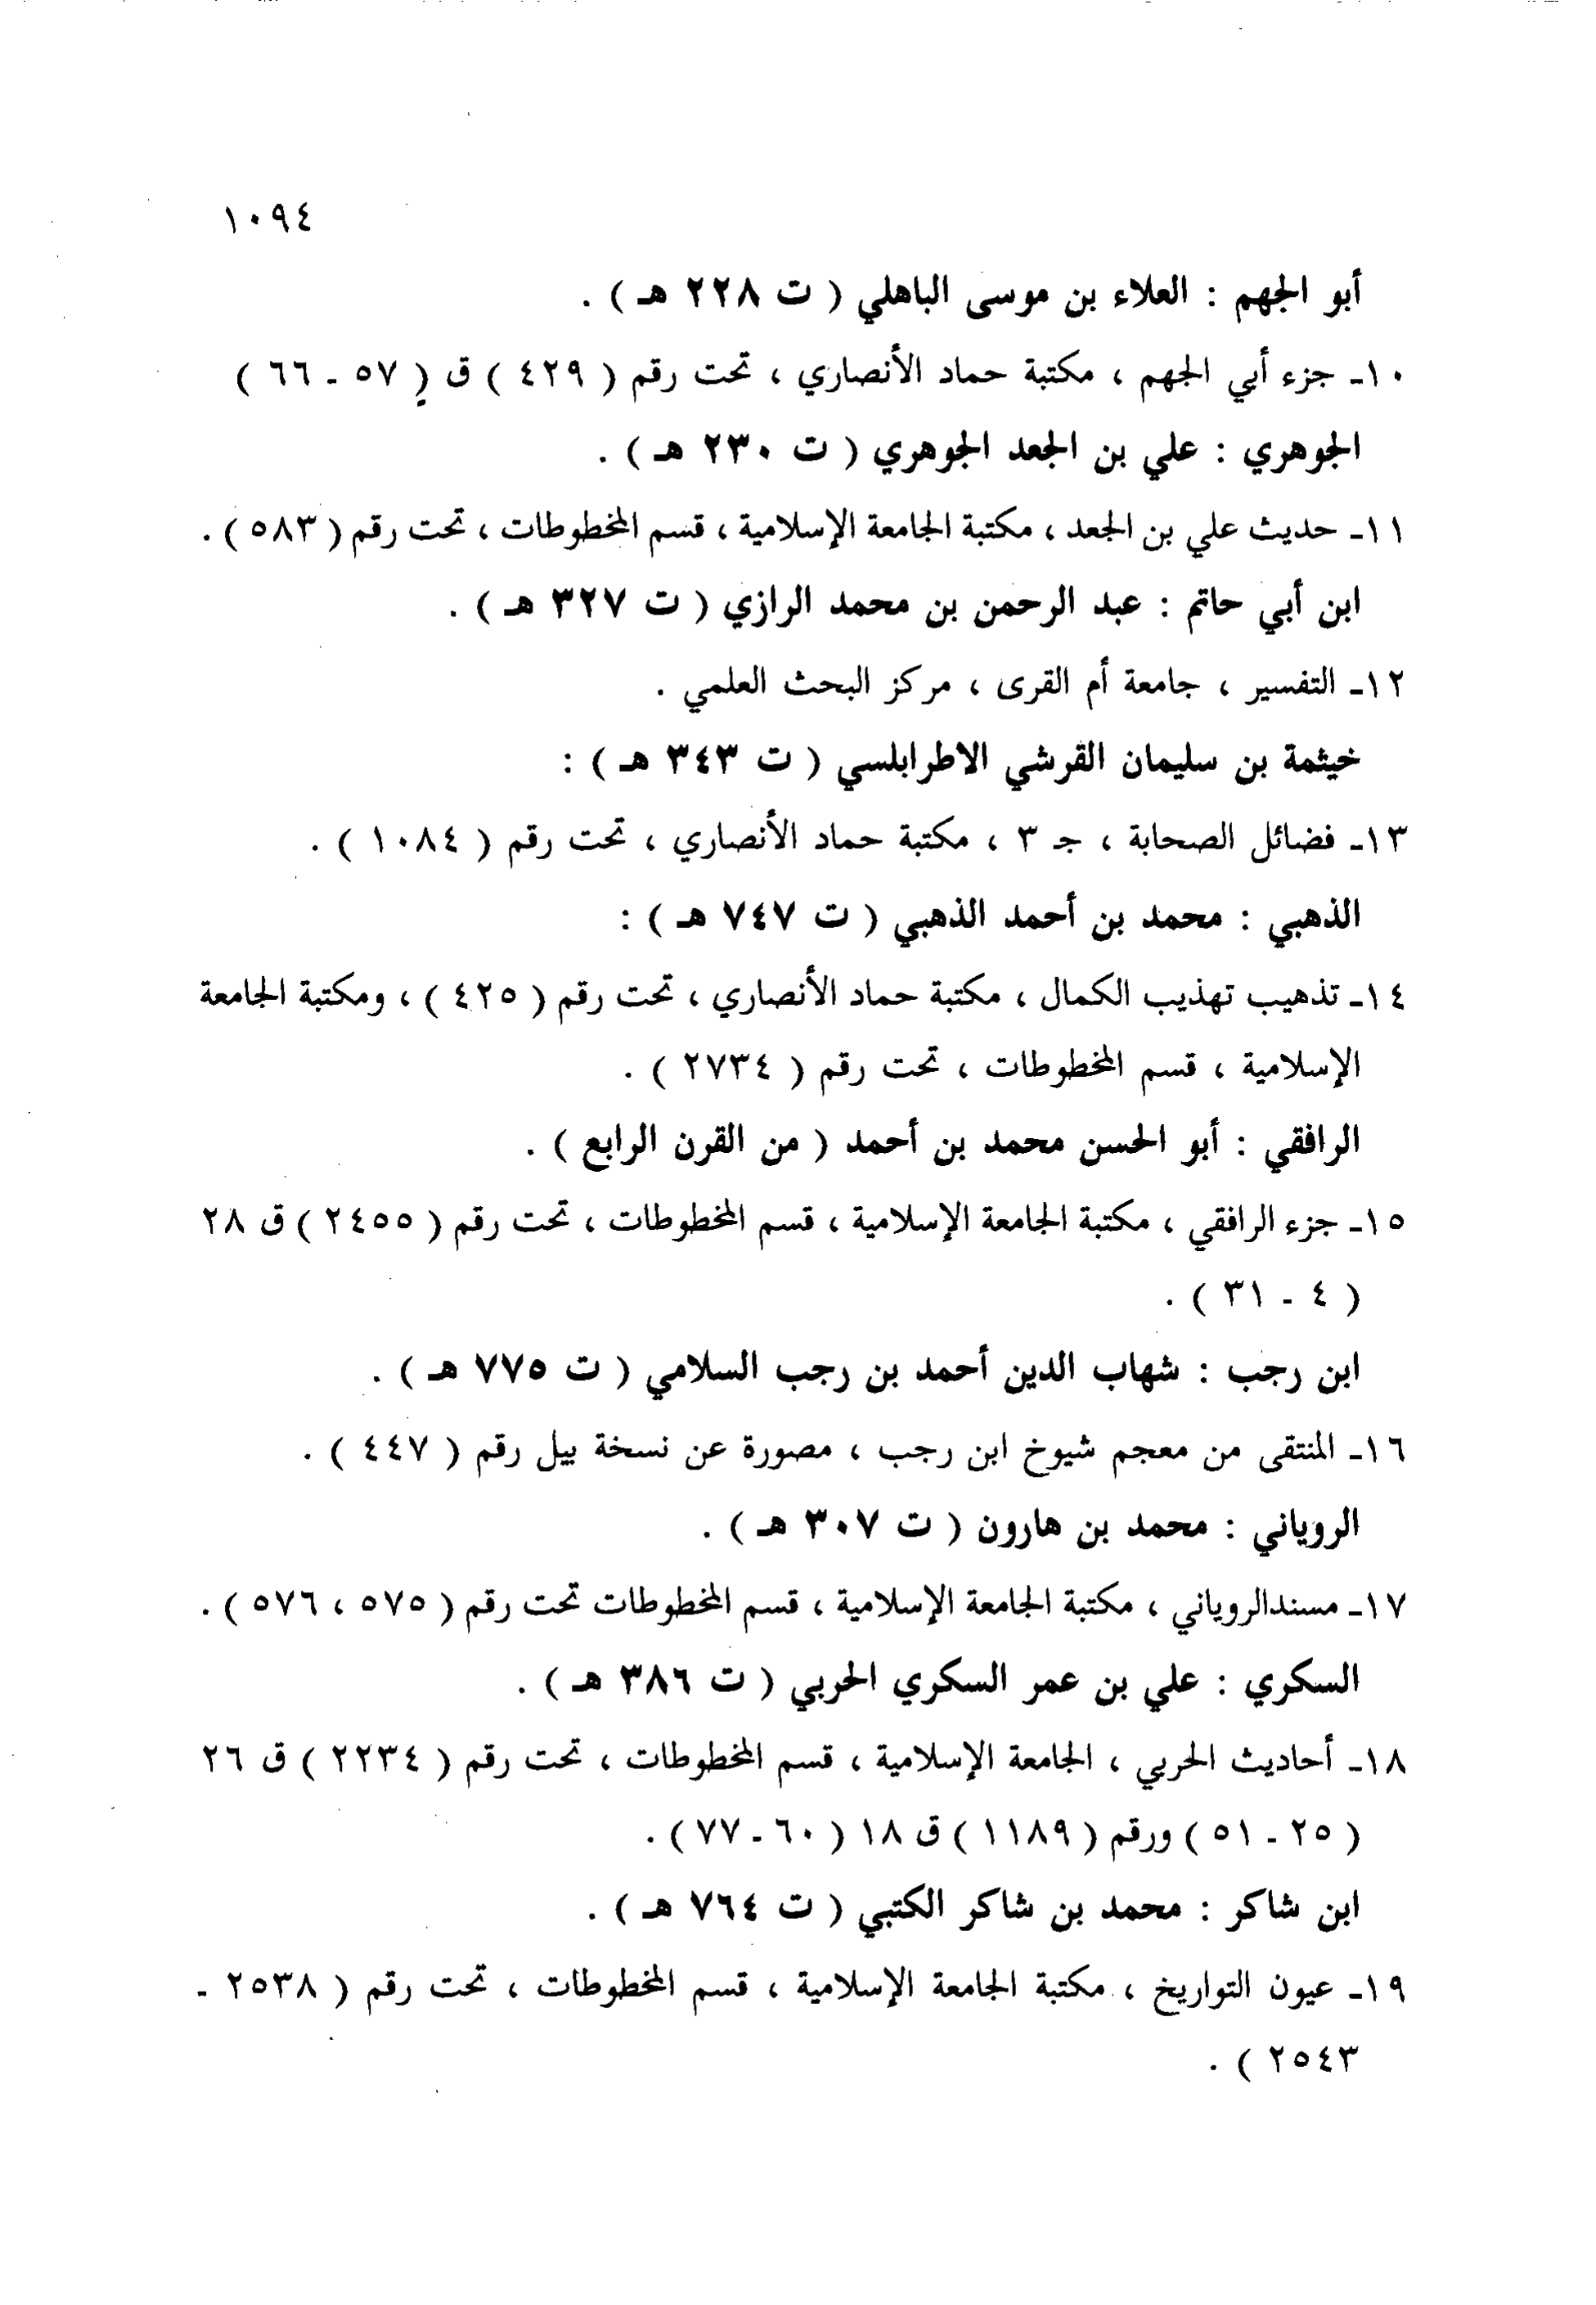 ١٠٩٤
أبو الجهم : العلاء بن موسى الباهلي ( ت ٢٢٨ هـ ) .
١٠ـ جزء أبي الجهم ، مكتبة حماد الأنصاري ، تحت رقم ( ٤٢٩ ) ق ( ٥٧ - ٦٦ )
الجوهري : علي بن الجعد الجوهري ( ت ٢٣٠ هـ ) .
١١ـ حديث علي بن الجعد ، مكتبة الجامعة الإسلامية ، قسم المخطوطات ، تحت رقم ( ٥٨٣ ) .
ابن أبي حاتم : عبد الرحمن بن محمد الرازي ( ت ٣٢٧ هـ ) .
١٢ـ التفسير ، جامعة أم القرى ، مركز البحث العلمي .
خيثمة بن سليمان القرشي الاطرابلسي ( ت ٣٤٣ هـ ) :
١٣ـ فضائل الصحابة ، جـ ٣ ، مكتبة حماد الأنصاري ، تحت رقم ( ١٠٨٤ ) .
الذهبي : محمد بن أحمد الذهبي ( ت ٧٤٧ هـ ) :
١٤ـ تذهيب تهذيب الكمال ، مكتبة حماد الأنصاري ، تحت رقم ( ٤٢٥ ) ، ومكتبة الجامعة
الإسلامية ، قسم المخطوطات ، تحت رقم ( ٢٧٣٤ ) .
الرافقي : أبو الحسن محمد بن أحمد ( من القرن الرابع ) .
١٥ـ جزء الرافقي ، مكتبة الجامعة الإسلامية ، قسم المخطوطات ، تحت رقم ( ٢٤٥٥ ) ق ٢٨
( ٤ - ٣١ ) .
ابن رجب : شهاب الدين أحمد بن رجب السلامي ( ت ٧٧٥ هـ ) .
١٦ـ المنتقى من معجم شيوخ ابن رجب ، مصورة عن نسخة بيل رقم ( ٤٤٧ ) .
الروياني : محمد بن هارون ( ت ٣٠٧ هـ ) .
١٧ـ مسندالروياني ، مكتبة الجامعة الإسلامية ، قسم المخطوطات تحت رقم ( ٥٧٥ ، ٥٧٦ ) .
السكري : علي بن عمر السكري الحربي ( ت ٣٨٦ هـ ) .
١٨ـ أحاديث الحربي ، الجامعة الإسلامية ، قسم المخطوطات ، تحت رقم ( ٢٢٣٤ ) ق ٢٦
( ٢٥ - ٥١ ) ورقم ( ١١٨٩ ) ق ١٨ ( ٦٠ - ٧٧ ) .
ابن شاكر : محمد بن شاكر الكتبي ( ت ٧٦٤ هـ ) .
١٩ـ عيون التواريخ ، مكتبة الجامعة الإسلامية ، قسم المخطوطات ، تحت رقم ( ٢٥٣٨ -
٢٥٤٣ ) .